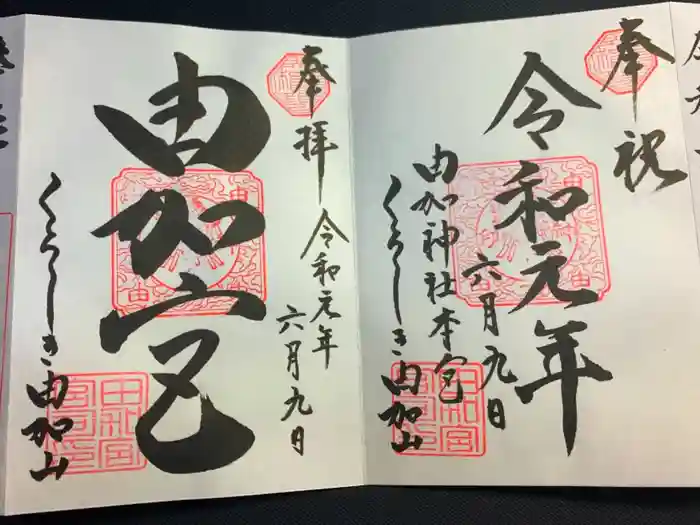 奉祝
令和元年
六月九日
由加神社本宮
くらしき由加山
奉拝
令和元年
六月九日
由加宮
くらしき由加山